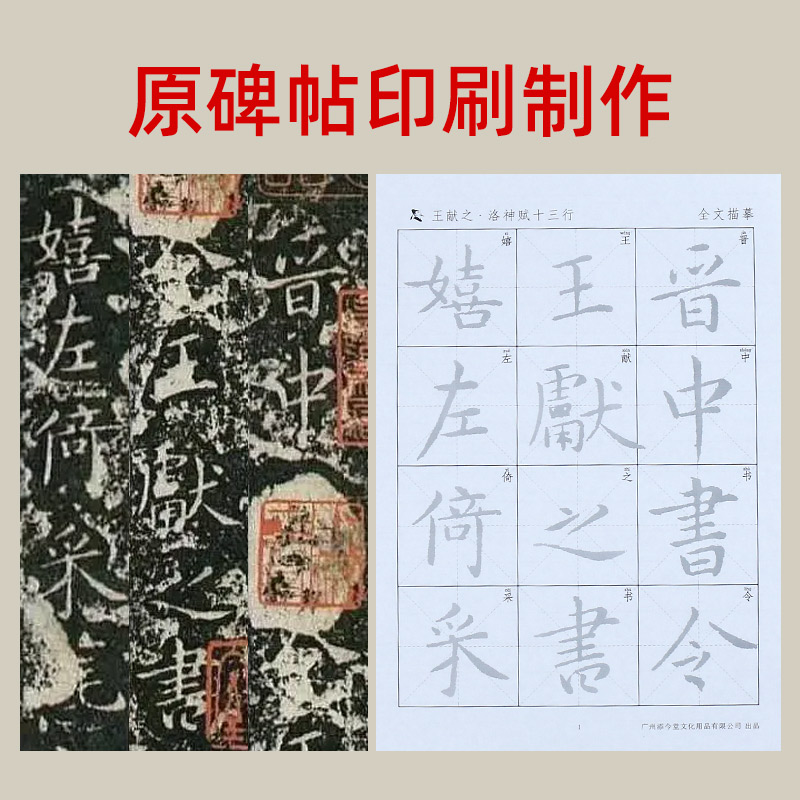 原碑帖印刷制作
晉中
王獻之書
嬉左倚采旄
王献之·洛神赋十三行
全文描摹
晉中書令
中书令
王獻之書
王献之书
嬉左倚采
嬉左倚采
1
广州添今堂文化用品有限公司 出品